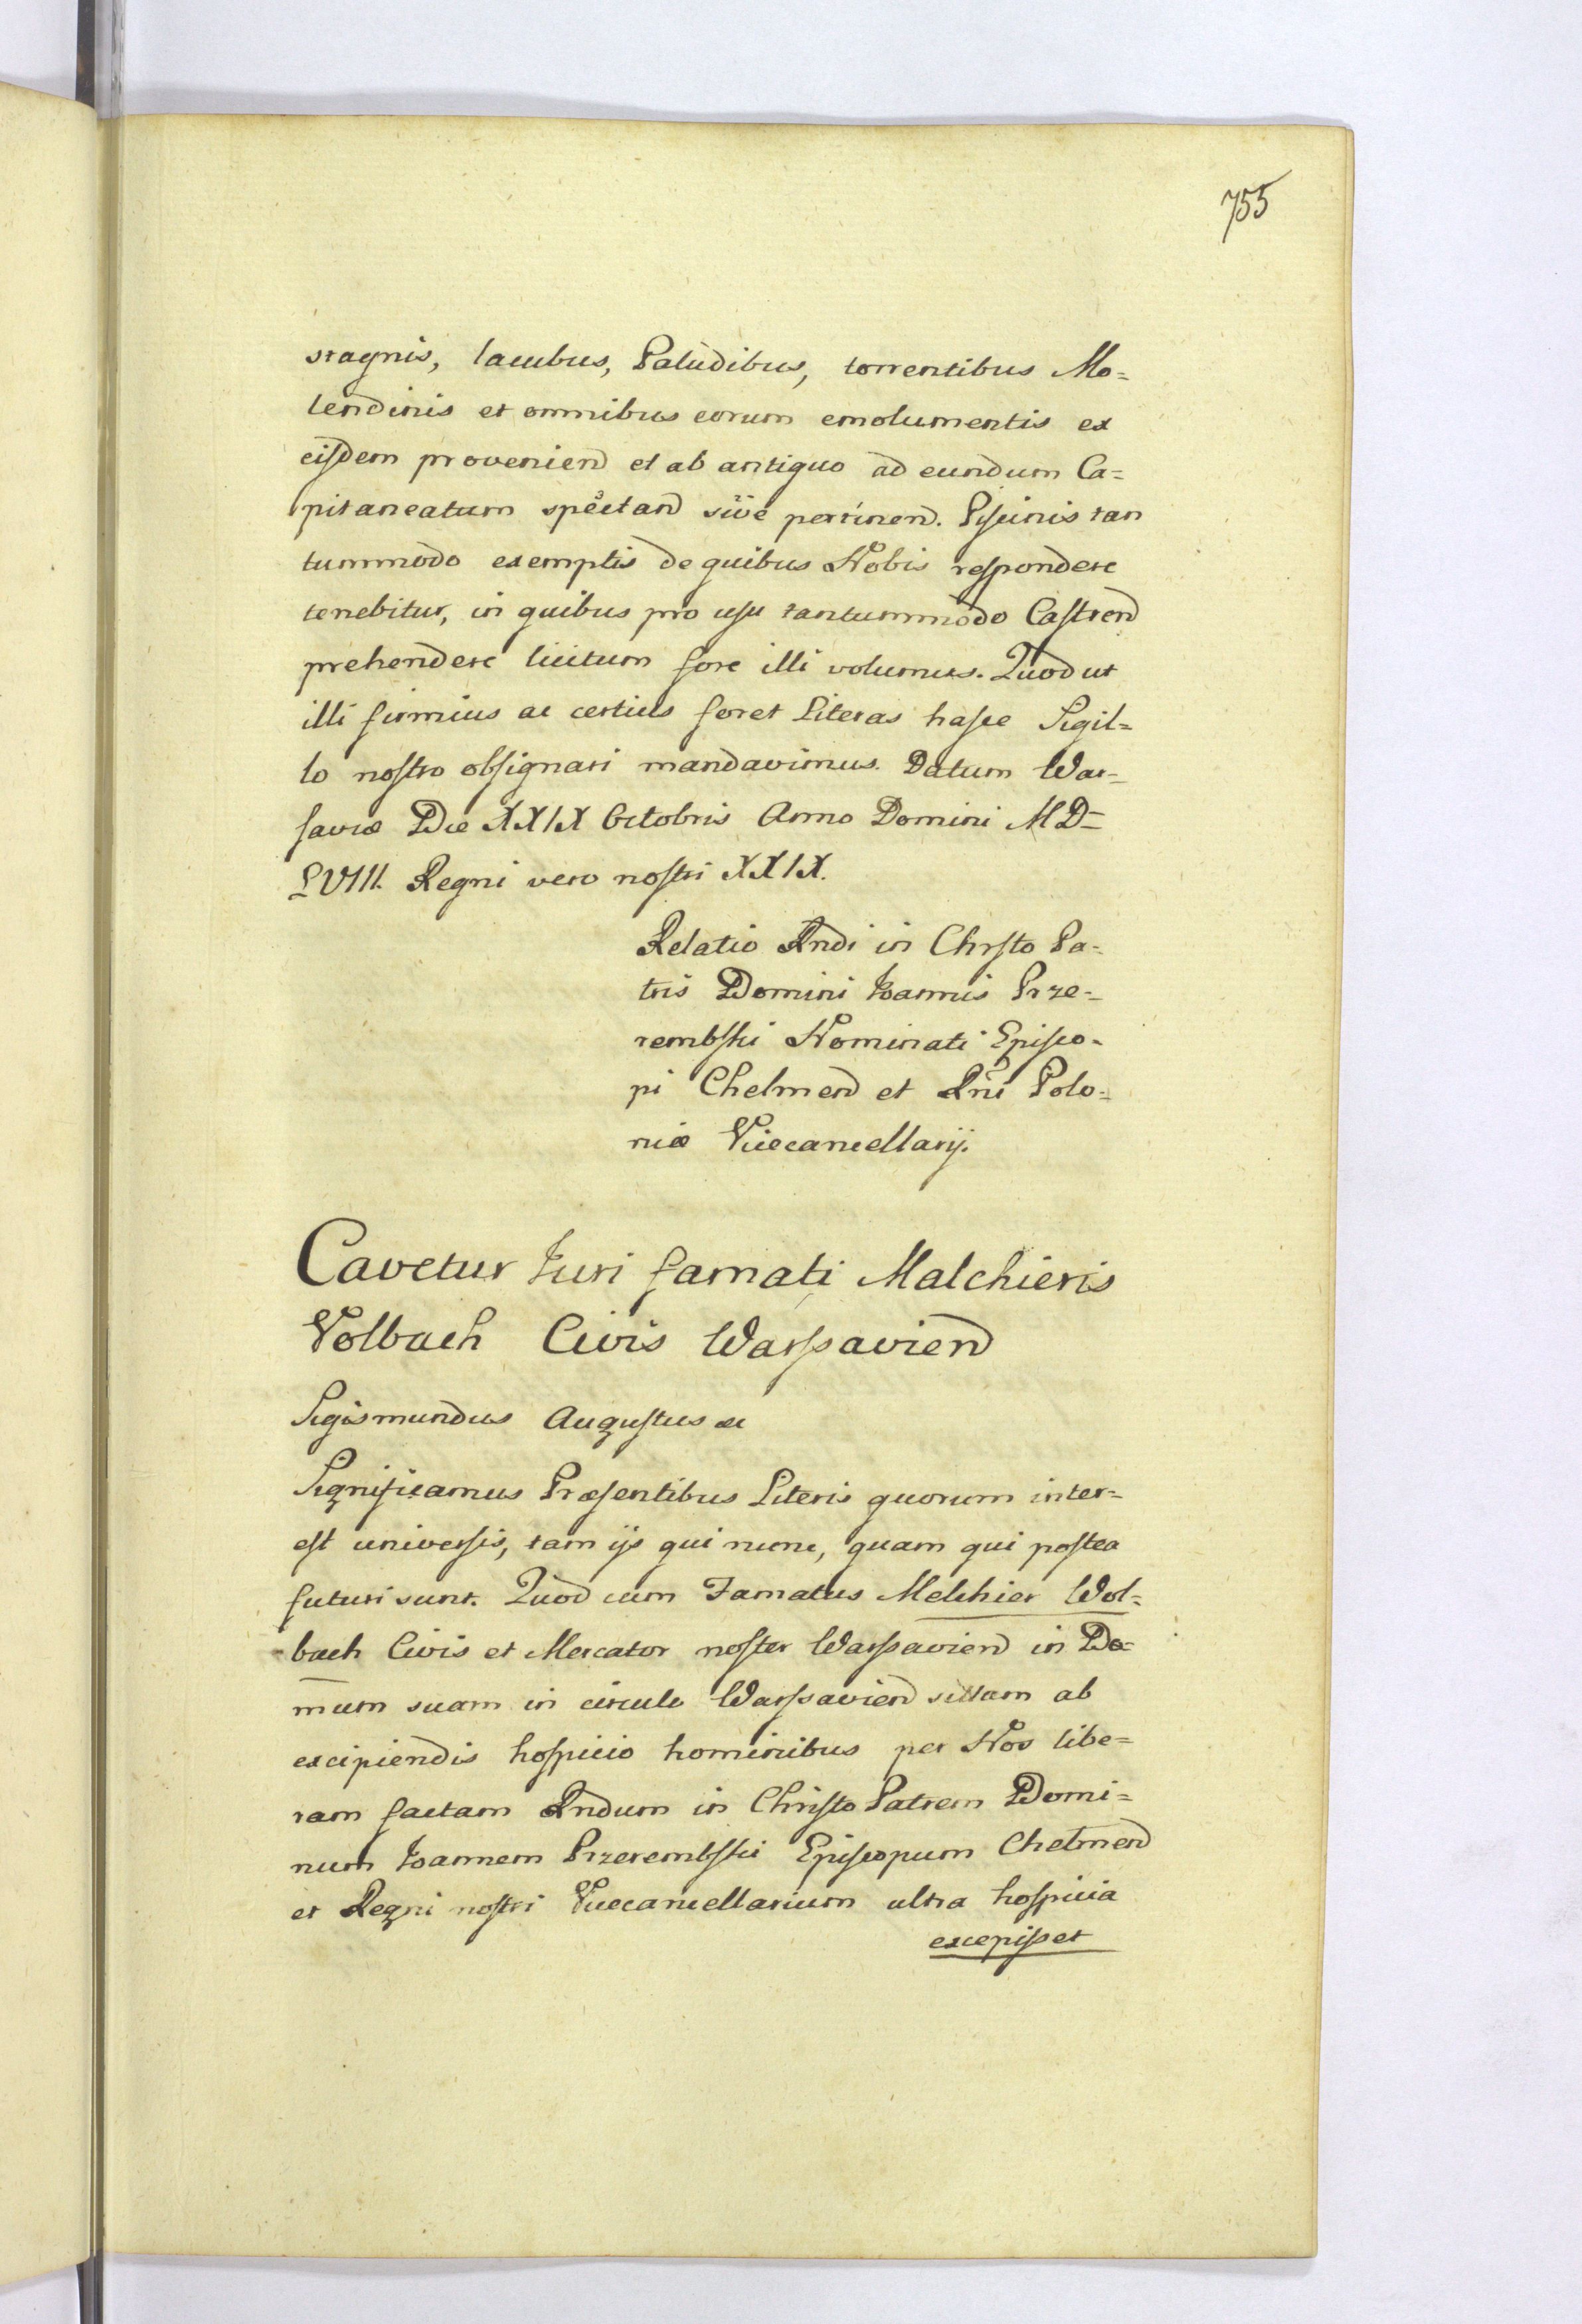 755
stagnis, lacubus, Paludibus, torrentibus Mo=
lendinis et omnibus eorum emolumentis ex
eisdem provenien̄ et ab antiquo ad eundum Ca=
pitaneatum spectan̄ sive pertinen̄. Piscinis tan
tummodo exemptis de quibus Nobis respondere
tenebitur, in quibus pro usu tantummodo Castren̄
prehendere licitum fore illi volumus. Quod ut
illi firmius ac certius foret Literas hasce Sigil=
lo nostro obsignari mandavimus. Datum War=
saviæ Die XXIX Octobris Anno Domini MD=
LVIII. Regni vero nostri XXIX.
Relatio Rndi in Chrsto Pa=
tris Domini Joannis Prze=
rembski Nominati Episco=
pi Chelmen̄ et Rni Polo=
niæ Vicecancellarij.
Cavetur Juri famati Malchieris
Volbach Civis Warssavien̄
Sigismundus Augustus &c
Significamus Præsentibus Literis quorum inter=
est universis, tam ijs qui nunc, quam qui postea
futuri sunt. Quod cum Famatus Melchier Wol=
bach Civis et Mercator noster Warssavien̄ in Do=
mum suam in circulo Warssavien̄ sittam ab
excipiendis hospicio hominibus per Nos libe=
ram factam Rndum in Christo Patrem Domi=
num Joannem Przerembski Episcopum Chelmen̄
et Regni nostri Vicecancellarium ultra hospicia
excepisset